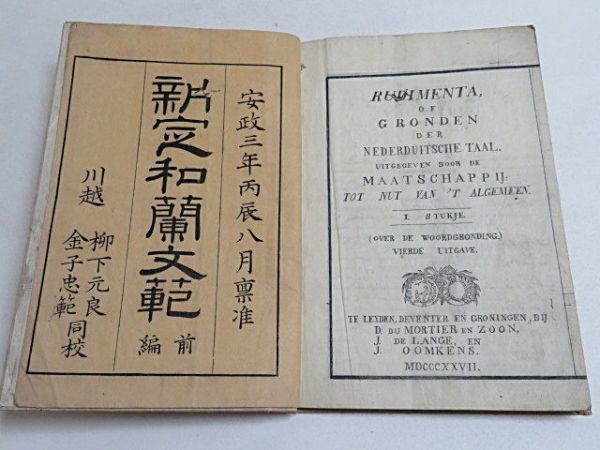 安政三年丙辰八月稟准
新定和蘭文範
前編
川越 柳下元良
金子忠範 同校
RUDIMENTA,
OF
GRONDEN
DER
NEDERDUITSCHE TAAL.
UITGEGEVEN DOOR DE
MAATSCHAPPIJ:
TOT NUT VAN 'T ALGEMEEN.
I. STUKJE.
(OVER DE WOORDGRONDING.)
VIERDE UITGAVE.
TE LEYDEN, DEVENTER EN GRONINGEN, BIJ
D. DU MORTIER EN ZOON,
J. DE LANGE, EN
J. OOMKENS.
MDCCCXXVII.